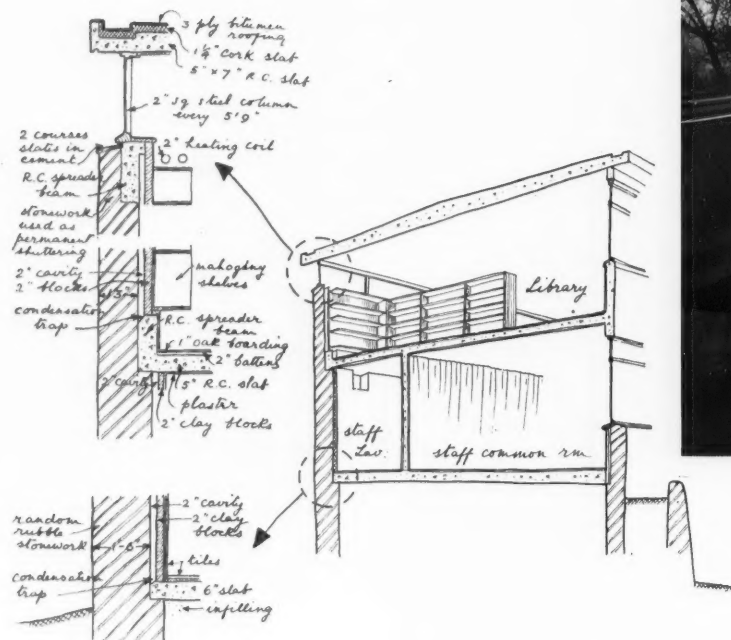 3 ply bitumen
roofing
1¼" cork slab
5" x 7" R.C. slab
2" sq steel column
every 5'9"
2 courses
slates in
cement
2" heating coil
R.C. spreader
beam
stonework
used as
permanent
shuttering
2" cavity
2" blocks
1'3"
condensation
trap
mahogany
shelves
R.C. spreader
beam
1" oak boarding
2" battens
2" cavity
5" R.C. slab
plaster
2" clay blocks
Library
staff
Lav.
staff common rm
random
rubble
stonework
1'-6"
condensation
trap
2" cavity
2" clay
blocks
tiles
6" slab
infilling